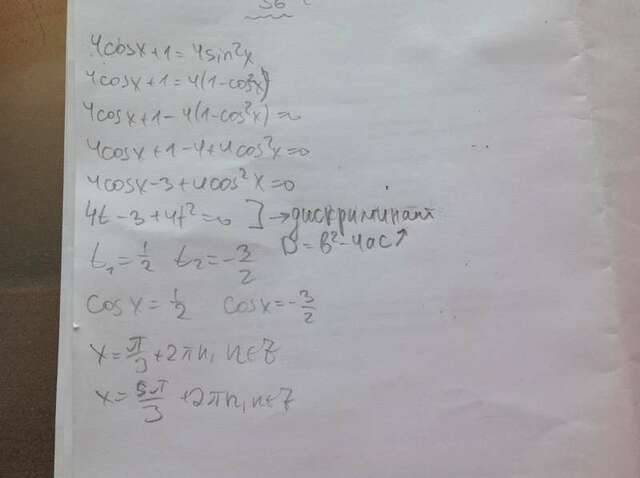 56
4cosx+1=4sin²x
4cosx+1=4(1-cos²x)
4cosx+1-4(1-cos²x)=0
4cosx+1-4+4cos²x=0
4cosx-3+4cos²x=0
4t-3+4t²=0 ]→дискриминант
D=b²-4ac↑
t₁=1/2 t₂=-3/2
cosx=1/2 cosx=-3/2
x=π/3+2πn, n∈Z
x=5π/3+2πn, n∈Z